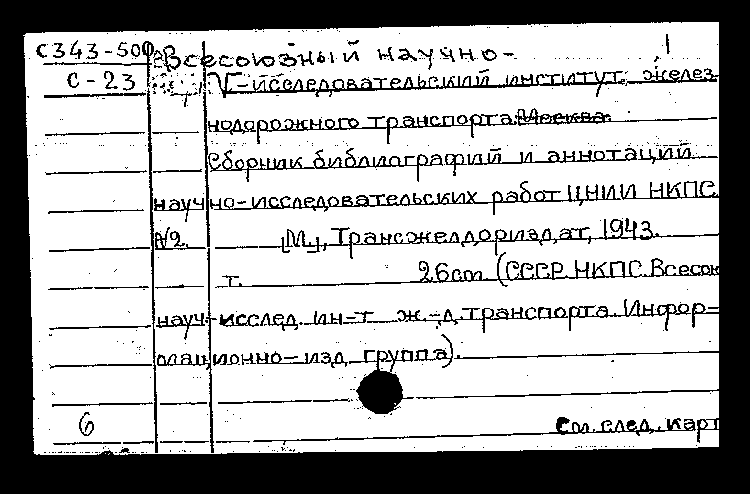 С343-500
Всесоюзный научно-
1
С-23
исследовательский институт желез
нодорожного транспорта. Москва.
Сборник библиографий и аннотаций
научно-исследовательских работ ЦНИИ НКПС.
№2. [М], Трансжелдориздат, 1943.
т. 26см (СССР. НКПС. Всесоюз
науч-исслед. ин-т ж.-д. транспорта. Инфор-
мационно-изд группа).
6
См. след. карт